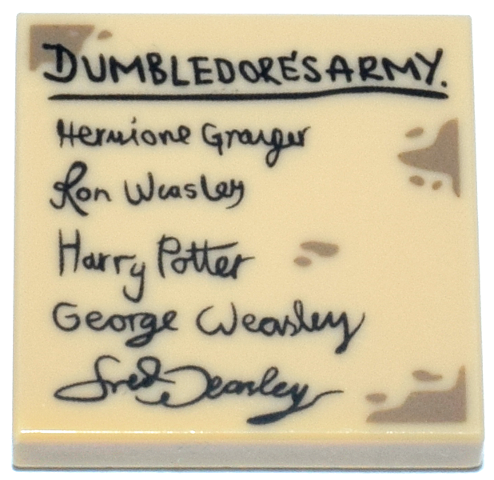 DUMBLEDORE'S ARMY.
Hermione Granger
Ron Weasley
Harry Potter
George Weasley
Fred Weasley